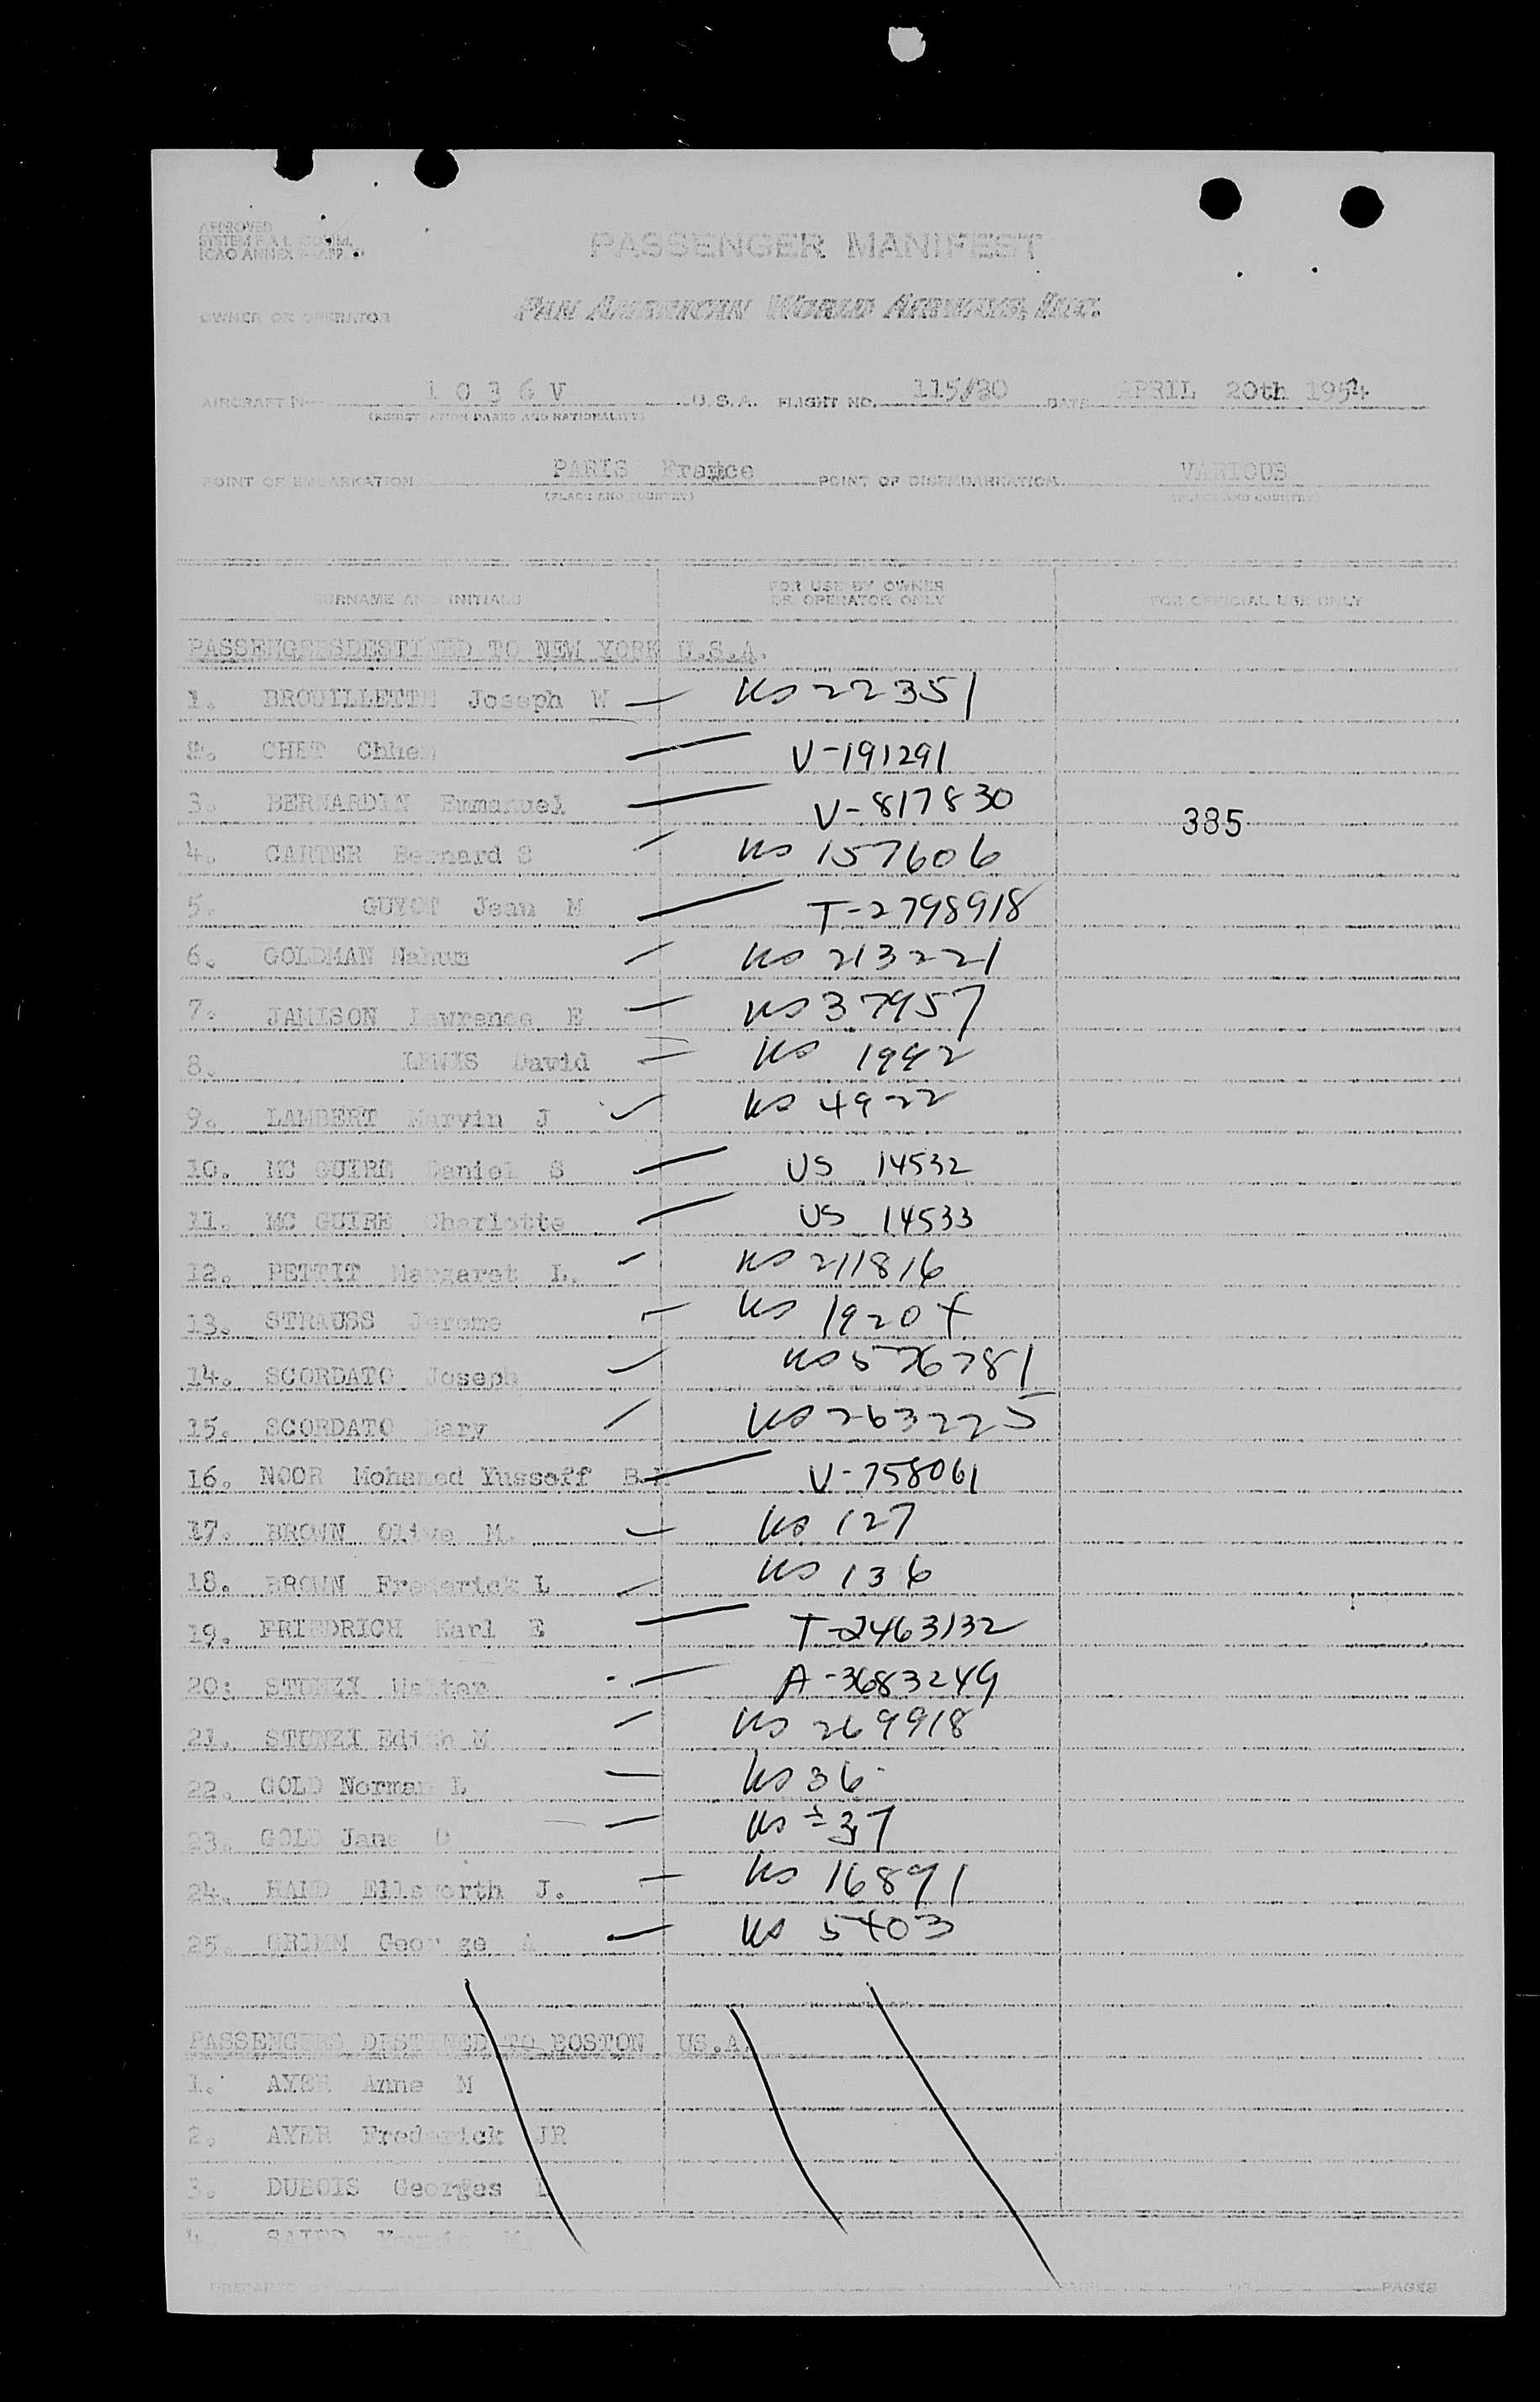 APPROVED
SYSTEM F.A.L. COMM.
ICAO ANNEX
PASSENGER MANIFEST
OWNER OR OPERATOR PAN AMERICAN WORLD AIRWAYS, INC.
AIRCRAFT N 1 0 3 6 V U.S.A. FLIGHT NO. 115/80 DATE APRIL 20th 1954
(REGISTRATION MARKS AND NATIONALITY)
POINT OF EMBARKATION PARIS France POINT OF DISEMBARKATION VARIOUS
(PLACE AND COUNTRY) (PLACE AND COUNTRY)
SURNAME AND INITIALS FOR USE BY OWNER OR OPERATOR ONLY FOR OFFICIAL USE ONLY
PASSENGERSDESTINED TO NEW YORK U.S.A.
1. BROUILLETTE Joseph W — US 22351
2. CHET Chhem — V-191291
3. BERNARDIN Emmanuel — V-817830
385
4. CARTER Bernard S — US 157606
5. GUYOT Jean M — T-2798918
6. GOLDMAN Nahum — US 213221
7. JAMISON Lawrence E — US 37957
8. LEWIS David — US 1942
9. LAMBERT Marvin J ✓ US 4922
10. MC GUIRE Daniel S — US 14532
11. MC GUIRE Charlotte — US 14533
12. PETTIT Margaret L. — US 211816
13. STRAUSS Jerome — US 19204
14. SCORDATO Joseph — US 576781
15. SCORDATO Mary — US 263225
16. NOOR Mohamed Yusseff B.M — V-758061
17. BROWN Olive M. — US 127
18. BROWN Frederick L — US 136
19. FRIEDRICH Karl E — T-2463132
20: STUNZI Walter — A-3683249
21. STUNZI Edith M — US 269918
22. GOLD Norman L — US 36
23. GOLD Jane D — US 37
24. HAND Ellsworth J. — US 16891
25. GRIMM George A — US 5403
PASSENGERS DESTINED TO BOSTON US.A.
1. AYER Anne M
2. AYER Frederick JR
3. DUBOIS Georges L
4. SAIED
PREPARED BY PAGE OF PAGES